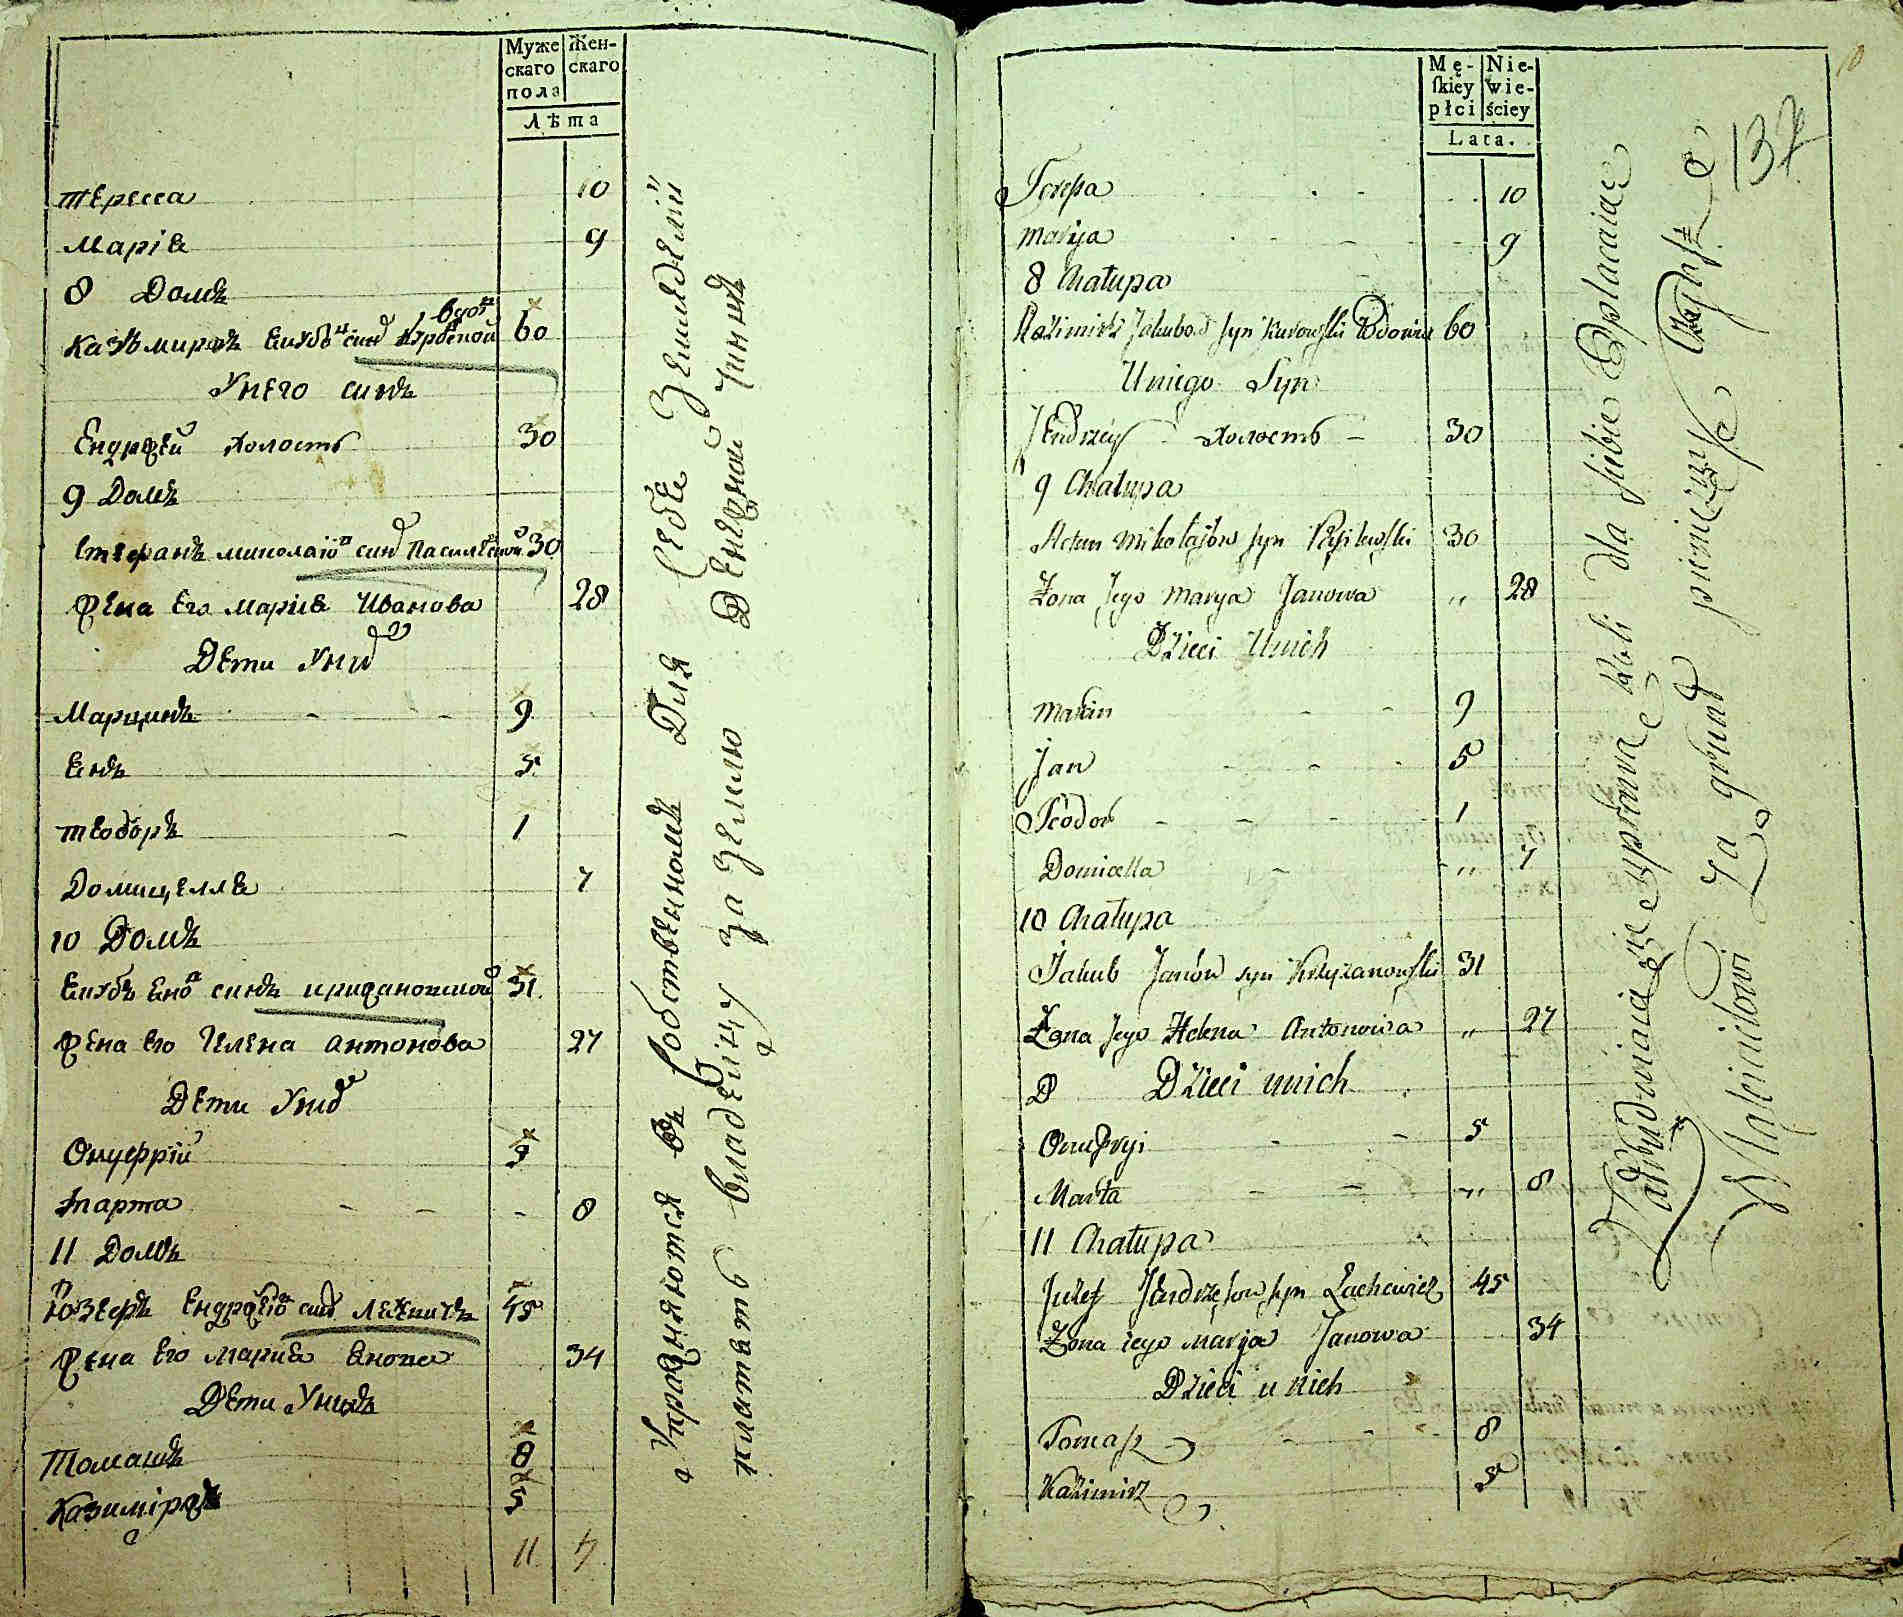 Муже Жен-
скаго скаго
пола
Лѣта
Тересса 10
Маріе 9
8 Домъ
вдов
Казѣмиръ Екубо син Курвской 60
Унего синъ
Ендржей холость 30
9 Домъ
Стефанъ миколаіо син Пасилевской 30
Жена Его Марие Иванова 28
Дети Унихъ
Марцинъ - - 9
Енъ 5
теодоръ - 1
Домицелле 7
10 Домъ
Екубъ Ено синъ крижановской 31
Жена Его Гелена антонова 27
Дети Унихъ
Онуфрій 5
Марта - - - 8
11 Домъ
Юзефъ Ендрѣіо син Лехеичъ 45
Жена Его Марие Енова 34
Дети Унихъ
Томашъ 8
Казиміръ 5
11 7
Упражняются въ Собственномъ Для Себѣ Земледеліи
платять владеицу за Землю Денежной чиншъ
Mę- Nie-
ſkiey wie-
płci ściey
Lata.
137
Teresſa - - 10
Marija - - - 9
8 Chałupa
Kazimirz Jakubow ſyn Kurowſki Wdowiec 60
Uniego Syn
Jendrzey холостъ - 30
9 Chałupa
Stefan Mikołajow ſyn Pasilewſki 30
Żona Jego Marya Janowa „ 28
Dzieci Unich
Marcin - - 9
Jan - - - 5
Teodor - - - 1
Domicella - „ 7
10 Chałupa
Jakub Janów syn Krzyzanowſki 31
Żona Jego Helena Antonowa „ 27
D Dzieci unich
Onufryi - - 5
Marta - - „ 8
11 Chałupa
Juzef Jendrzejow ſyn Lachewicz 45
Żona iego Marija Janowa 34
Dzieci u nich
Tomaſz - - 8
Kazimirz 5
Zatrudniaią się uprawą Roli dla siebie Opłacaiąc
Właścicielowi Za grunt pieniężny Czynsz